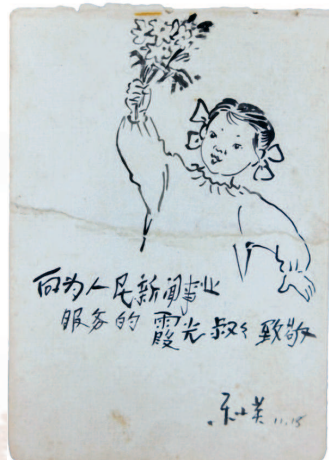 向为人民新闻事业
服务的 霞光叔々致敬
11.15